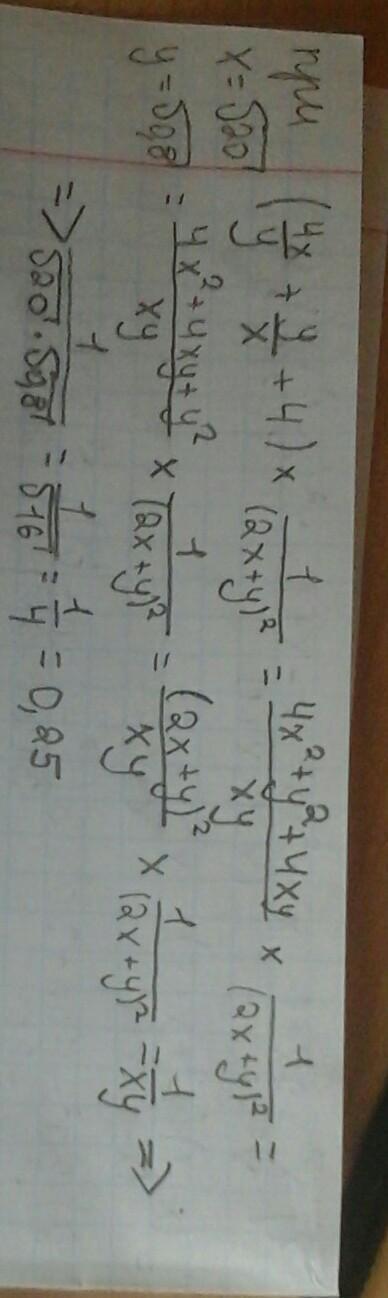 при
x = √20 (4x/y + y/x + 4) × 1/(2x+y)² = (4x²+y²+4xy)/xy × 1/(2x+y)² =
y = √0,8 = (4x²+4xy+y²)/xy × 1/(2x+y)² = (2x+y)²/xy × 1/(2x+y)² = 1/xy =>
=> 1/(√20 · √0,8) = 1/√16 = 1/4 = 0,25